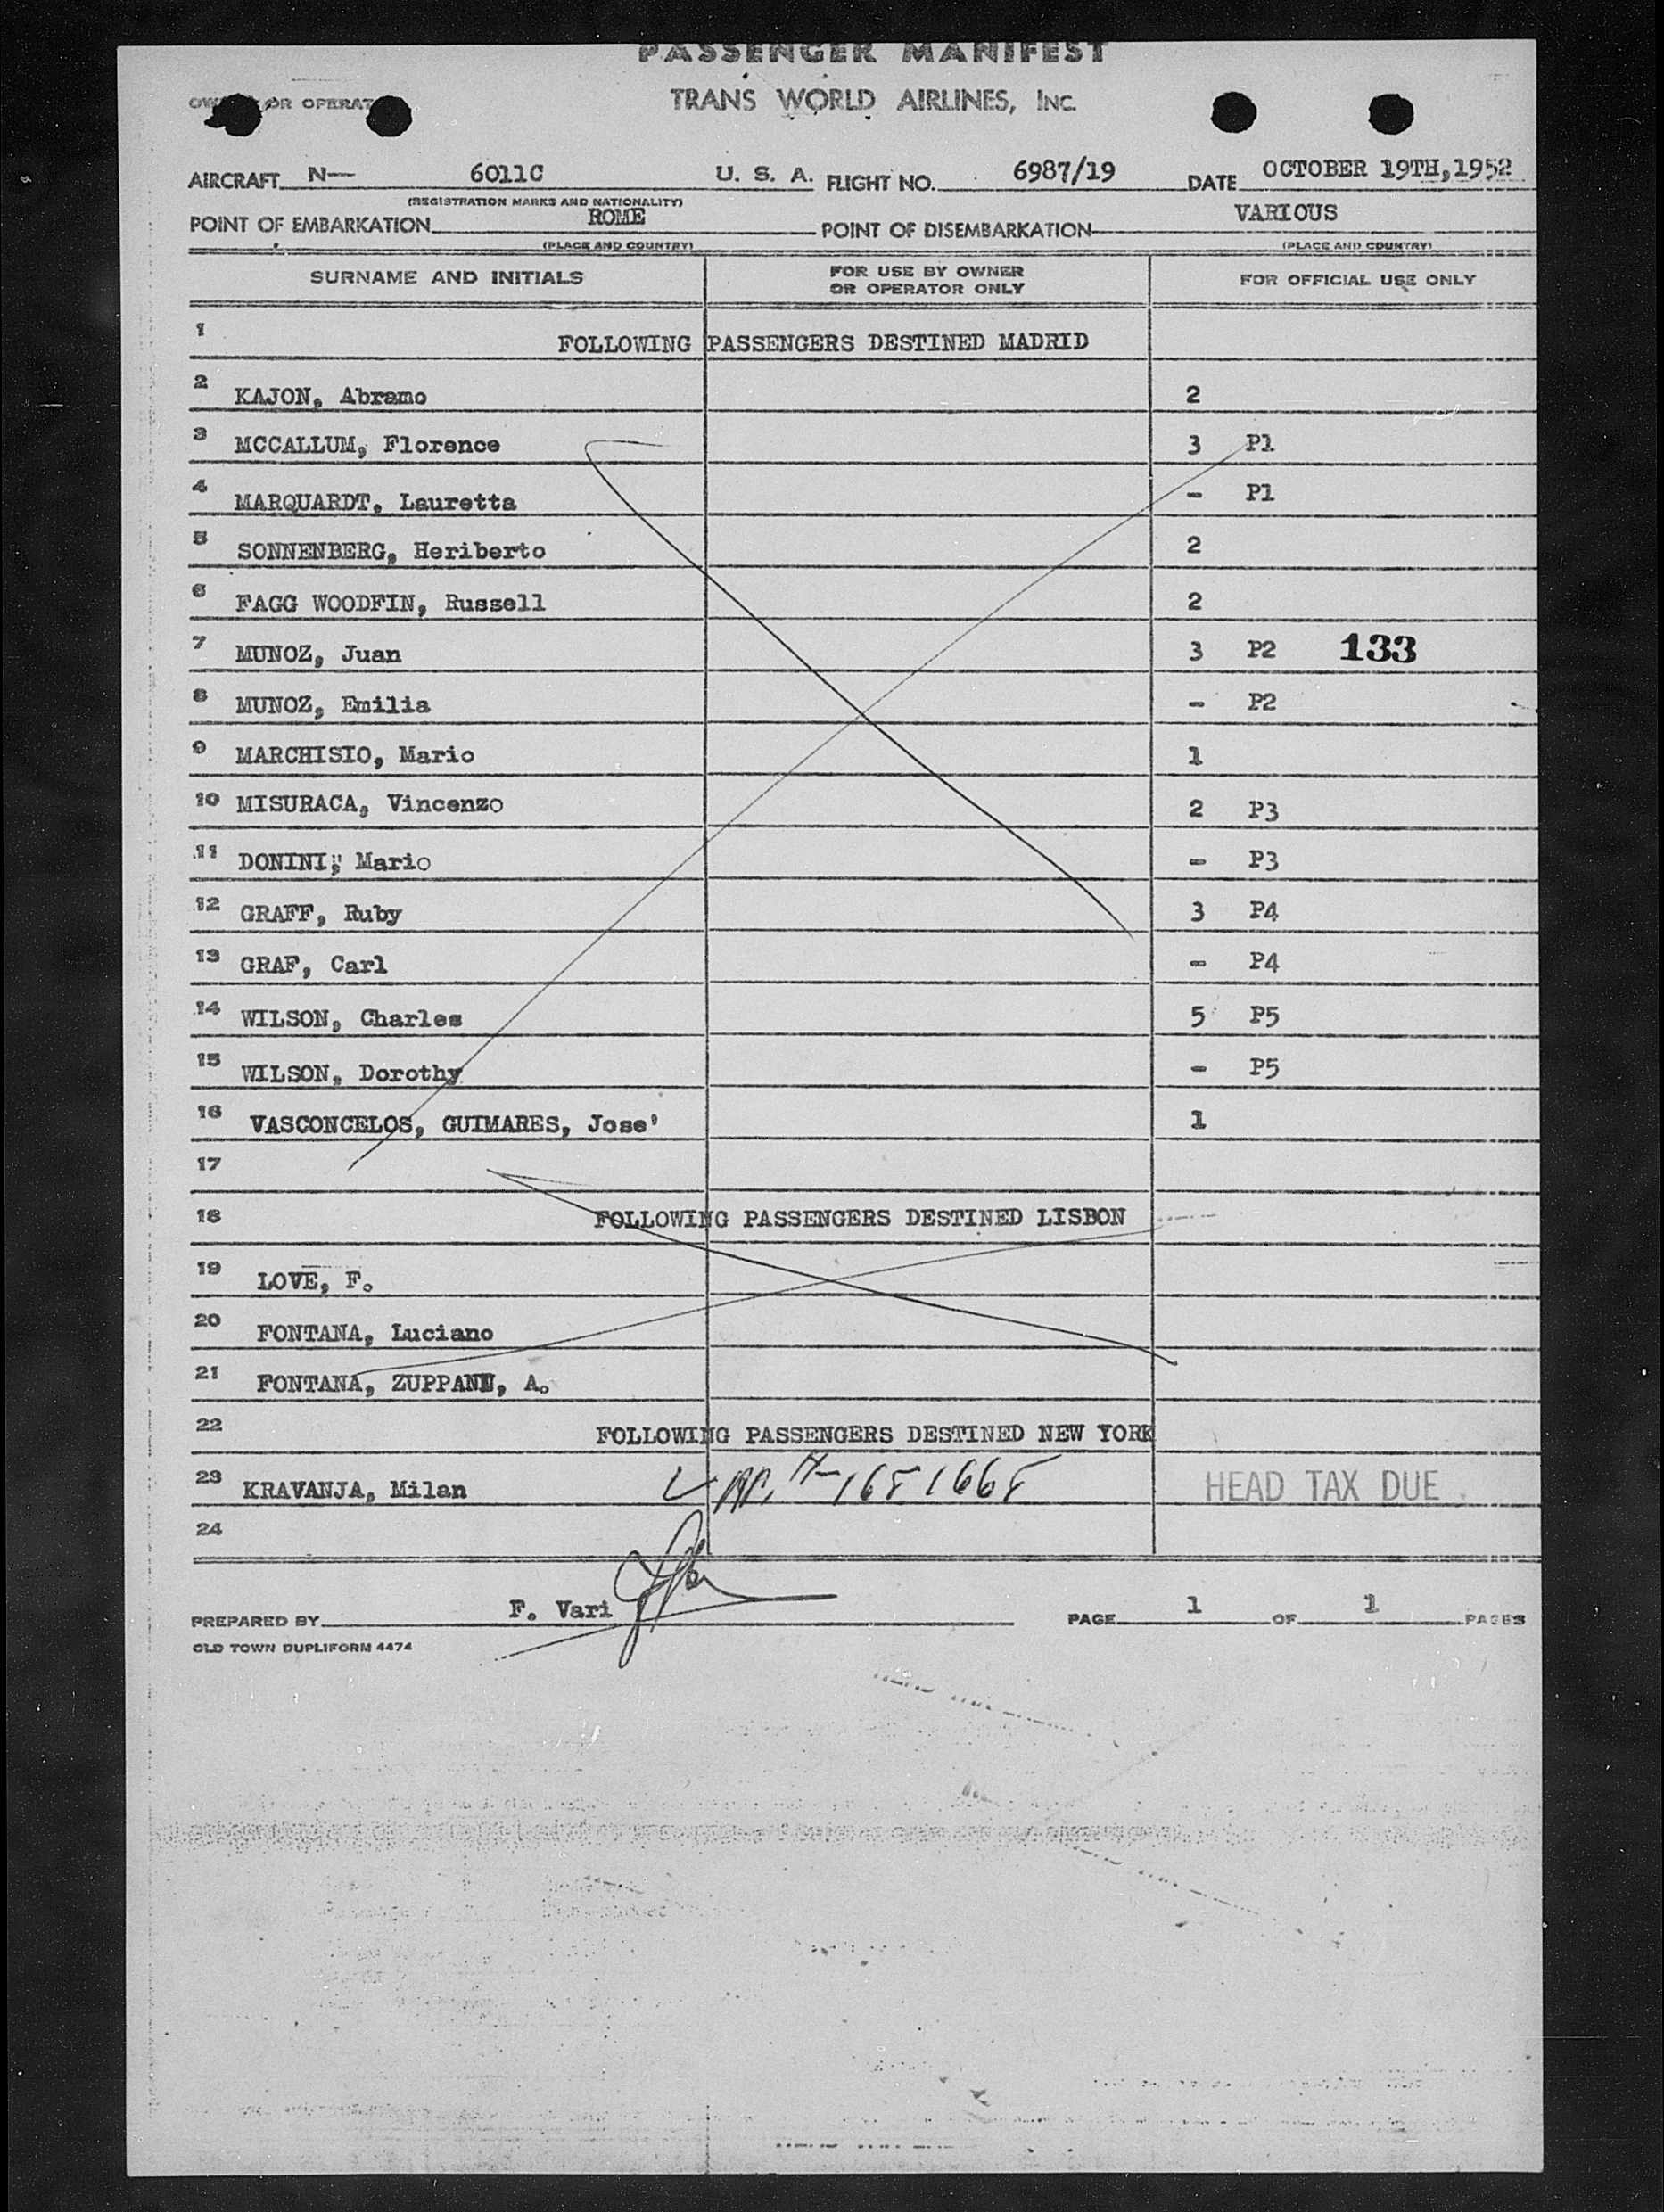 PASSENGER MANIFEST
OR OPERAT TRANS WORLD AIRLINES, INC.
AIRCRAFT N— 6011C U. S. A. FLIGHT NO. 6987/19 DATE OCTOBER 19TH, 1952
(REGISTRATION MARKS AND NATIONALITY)
POINT OF EMBARKATION ROME POINT OF DISEMBARKATION VARIOUS
(PLACE AND COUNTRY) (PLACE AND COUNTRY)
SURNAME AND INITIALS FOR USE BY OWNER OR OPERATOR ONLY FOR OFFICIAL USE ONLY
1 FOLLOWING PASSENGERS DESTINED MADRID
2 KAJON, Abramo 2
3 MCCALLUM, Florence 3 P1
4 MARQUARDT, Lauretta - P1
5 SONNENBERG, Heriberto 2
6 FAGG WOODFIN, Russell 2
7 MUNOZ, Juan 3 P2 133
8 MUNOZ, Emilia - P2
9 MARCHISIO, Mario 1
10 MISURACA, Vincenzo 2 P3
11 DONINI, Mario - P3
12 GRAFF, Ruby 3 P4
13 GRAF, Carl - P4
14 WILSON, Charles 5 P5
15 WILSON, Dorothy - P5
16 VASCONCELOS, GUIMARES, Jose' 1
17
18 FOLLOWING PASSENGERS DESTINED LISBON
19 LOVE, F.
20 FONTANA, Luciano
21 FONTANA, ZUPPANI, A.
22 FOLLOWING PASSENGERS DESTINED NEW YORK
23 KRAVANJA, Milan HEAD TAX DUE
24
PREPARED BY F. Vari PAGE 1 OF 1 PAGES
OLD TOWN DUPLIFORM 4474